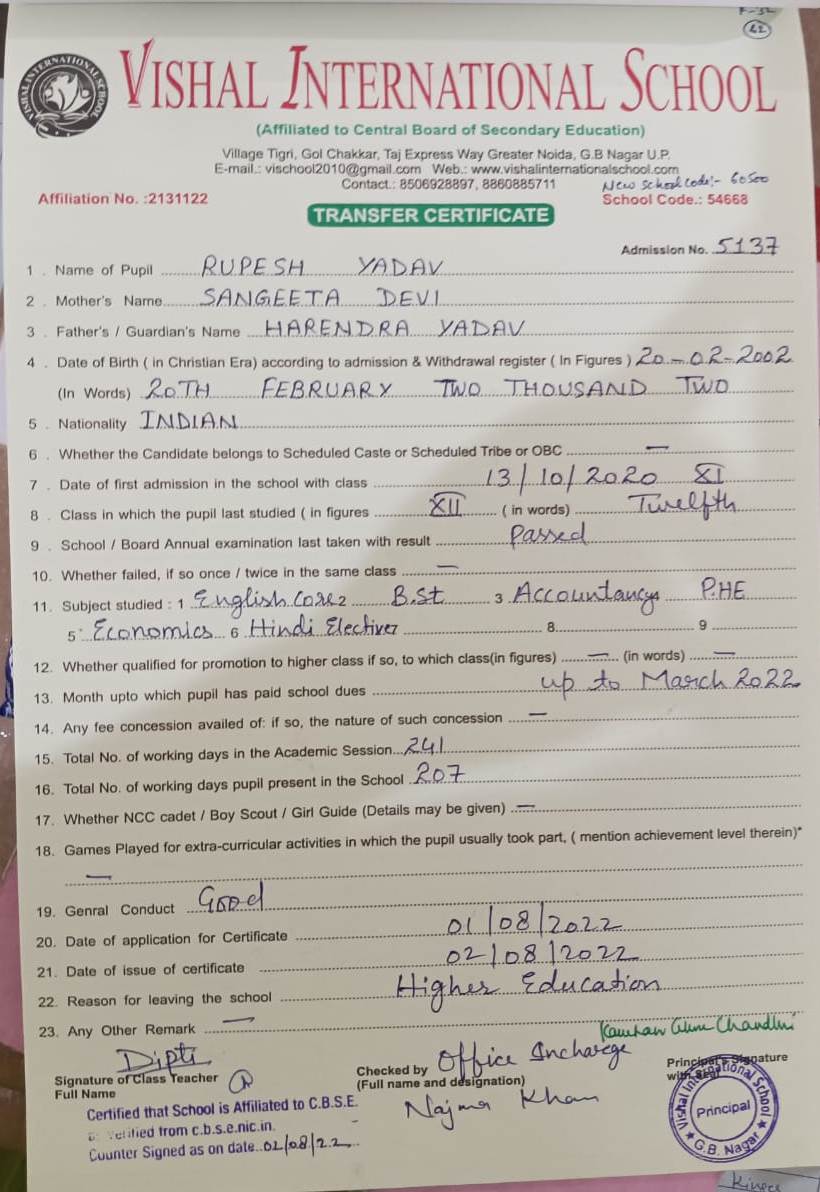 F-32
62
VISHAL INTERNATIONAL SCHOOL
VISHAL INTERNATIONAL SCHOOL
(Affiliated to Central Board of Secondary Education)
Village Tigri, Gol Chakkar, Taj Express Way Greater Noida, G.B Nagar U.P.
E-mail.: vischool2010@gmail.com Web.: www.vishalinternationalschool.com
Contact.: 8506928897, 8860885711 New School Code:- 60500
Affiliation No. :2131122 School Code.: 54668
TRANSFER CERTIFICATE
Admission No. 5137
1 . Name of Pupil RUPESH YADAV
2 . Mother's Name SANGEETA DEVI
3 . Father's / Guardian's Name HARENDRA YADAV
4 . Date of Birth ( in Christian Era) according to admission & Withdrawal register ( In Figures ) 20-02-2002
(In Words) 20TH FEBRUARY TWO THOUSAND TWO
5 . Nationality INDIAN
6 . Whether the Candidate belongs to Scheduled Caste or Scheduled Tribe or OBC —
7 . Date of first admission in the school with class 13/10/2020 XI
8 . Class in which the pupil last studied ( in figures XII ( in words) Twelfth
9 . School / Board Annual examination last taken with result Passed
10. Whether failed, if so once / twice in the same class —
11. Subject studied : 1 English Core 2 B.St 3 Accountancy 4 P.HE
5 Economics 6 Hindi Elective 7 8 9
12. Whether qualified for promotion to higher class if so, to which class(in figures) — (in words) —
13. Month upto which pupil has paid school dues up to March 2022
14. Any fee concession availed of: if so, the nature of such concession —
15. Total No. of working days in the Academic Session 241
16. Total No. of working days pupil present in the School 207
17. Whether NCC cadet / Boy Scout / Girl Guide (Details may be given) —
18. Games Played for extra-curricular activities in which the pupil usually took part, ( mention achievement level therein)*
—
19. Genral Conduct Good
20. Date of application for Certificate 01/08/2022
21. Date of issue of certificate 02/08/2022
22. Reason for leaving the school Higher Education
23. Any Other Remark —
Dipti
Signature of Class Teacher
Full Name
Checked by Office Incharge
(Full name and designation)
Najma Khan
Principal's Signature
with Seal
Certified that School is Affiliated to C.B.S.E.
verified from c.b.s.e.nic.in.
Counter Signed as on date..02/08/22
Vishal International School
Principal
G.B. Nagar